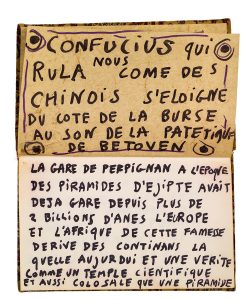 CONFUCIUS qui
NOUS
RULA COME DES
CHINOIS S'ELOIGNE
DU COTE DE LA BURSE
AU SON DE LA PATETIQUE
DE BETOVEN
LA GARE DE PERPIGNAN A L'EPOQUE
DES PIRAMIDES D'EJIPTE AVAIT
DEJA GARE DEPUIS PLUS DE
2 BILLIONS D'ANES L'EUROPE
ET L'AFRIQUE DE CETTE FAMEESE
DERIVE DES CONTINANS LA
QUELLE AUJURDUI ET UNE VERITE
COMME UN TEMPLE CIENTIFIQUE
ET AUSSI COLOSALE QUE UNE PIRAMIDE